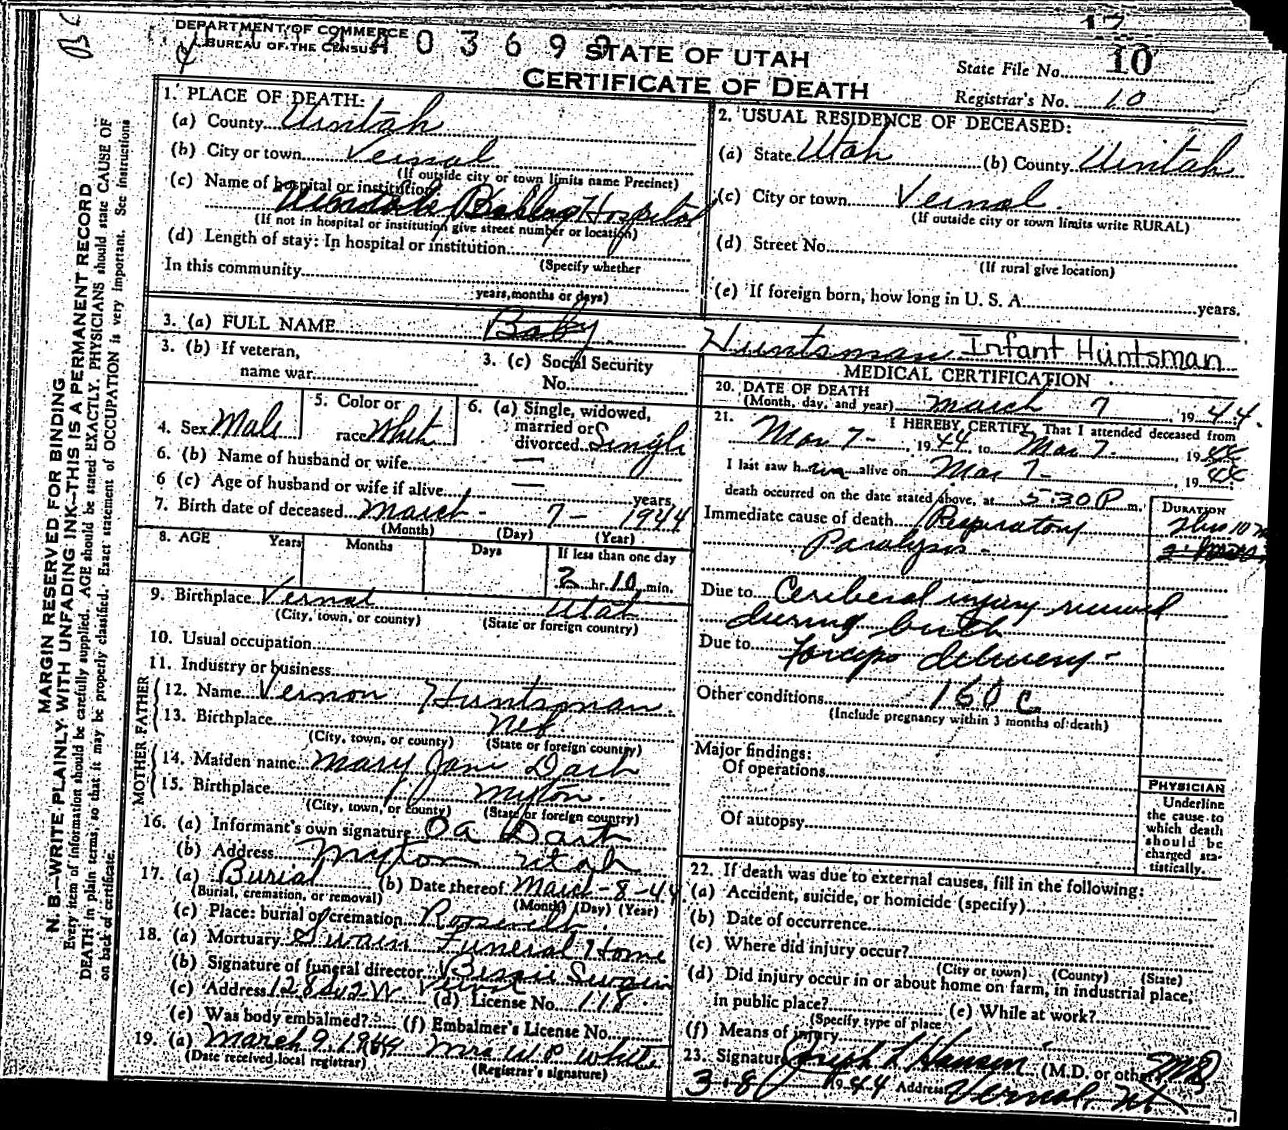 DEPARTMENT OF COMMERCE
BUREAU OF THE CENSUS
A 0 3 6 9
STATE OF UTAH
CERTIFICATE OF DEATH
State File No. 10
Registrar's No. 10
MARGIN RESERVED FOR BINDING
N. B.—WRITE PLAINLY WITH UNFADING INK—THIS IS A PERMANENT RECORD
Every item of information should be carefully supplied. AGE should be stated EXACTLY. PHYSICIANS should state CAUSE OF
DEATH in plain terms, so that it may be properly classified. Exact statement of OCCUPATION is very important. See instructions
on back of certificate.
1. PLACE OF DEATH:
(a) County Uintah
(b) City or town Vernal
(If outside city or town limits name Precinct)
(c) Name of hospital or institution:
Hospital
(If not in hospital or institution give street number or location)
(d) Length of stay: In hospital or institution
(Specify whether
In this community
years, months or days)
2. USUAL RESIDENCE OF DECEASED:
(a) State Utah (b) County Uintah
(c) City or town Vernal
(If outside city or town limits write RURAL)
(d) Street No.
(If rural give location)
(e) If foreign born, how long in U. S. A. years.
3. (a) FULL NAME Baby Huntsman Infant Huntsman
3. (b) If veteran,
name war
3. (c) Social Security
No.
4. Sex Male
5. Color or
race Whit
6. (a) Single, widowed,
married or
divorced Single
6. (b) Name of husband or wife —
6 (c) Age of husband or wife if alive — years
7. Birth date of deceased March - 7 - 1944
(Month) (Day) (Year)
8. AGE Years Months Days If less than one day
2 hr. 10 min.
9. Birthplace Vernal Utah
(City, town, or county) (State or foreign country)
10. Usual occupation
11. Industry or business
FATHER
12. Name Vernon Huntsman
13. Birthplace Neb.
(City, town, or county) (State or foreign country)
MOTHER
14. Maiden name Mary Jane Dart
15. Birthplace Myton.
(City, town, or county) (State or foreign country)
16. (a) Informant's own signature OA Dart
(b) Address Myton Utah
17. (a) Burial (b) Date thereof March - 8 - 44
(Burial, cremation, or removal) (Month) (Day) (Year)
(c) Place: burial or cremation Roosevelt
18. (a) Mortuary Swain Funeral Home
(b) Signature of funeral director Swain
(c) Address 128 W. Vernal (d) License No. 118.
(e) Was body embalmed? (f) Embalmer's License No.
19. (a) March 9, 1944 Mrs W P White
(Date received local registrar) (Registrar's signature)
MEDICAL CERTIFICATION
20. DATE OF DEATH
(Month, day, and year) March 7, 1944.
21. I HEREBY CERTIFY, That I attended deceased from
Mar 7 -, 1944, to Mar 7., 1944
I last saw him alive on Mar 7 -, 1944
death occurred on the date stated above, at 5:30 P m.
DURATION
Immediate cause of death Respiratory 2 hrs 10 m
Paralysis -
Due to Cerebral injury received
during birth
Due to forceps delivery -
Other conditions 160 c
(Include pregnancy within 3 months of death)
Major findings:
Of operations
Of autopsy
PHYSICIAN
Underline
the cause to
which death
should be
charged sta-
tistically.
22. If death was due to external causes, fill in the following:
(a) Accident, suicide, or homicide (specify)
(b) Date of occurrence
(c) Where did injury occur?
(City or town) (County) (State)
(d) Did injury occur in or about home on farm, in industrial place,
in public place? (e) While at work?
(Specify type of place
(f) Means of injury
23. Signature Joseph L Hansen (M.D. or other) MD
3-8 1944 Address Vernal, Ut